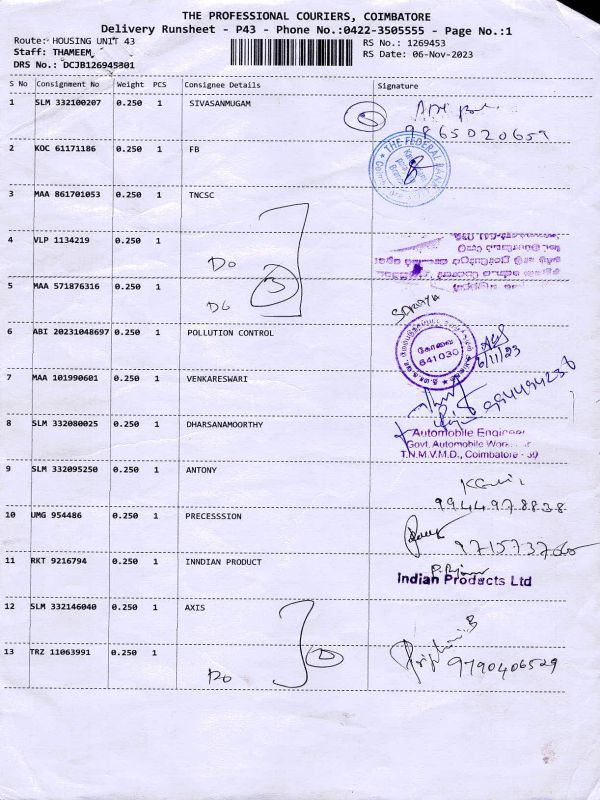 THE PROFESSIONAL COURIERS, COIMBATORE
Delivery Runsheet - P43 - Phone No.:0422-3505555 - Page No.:1
Route: HOUSING UNIT 43 RS No.: 1269453
Staff: THAMEEM, RS Date: 06-Nov-2023
DRS No.: DCJB126945301
S No Consignment No Weight PCS Consignee Details Signature
1 SLM 332100207 0.250 1 SIVASANMUGAM
9865020659
2 KOC 61171186 0.250 1 FB
THE FEDERAL BANK
3 MAA 861701053 0.250 1 TNCSC
4 VLP 1134219 0.250 1
Do
5 MAA 571876316 0.250 1
Do
6 ABI 20231048697 0.250 1 POLLUTION CONTROL
கோவை
641030
6/11/23
7 MAA 101990601 0.250 1 VENKARESWARI
8 SLM 332080025 0.250 1 DHARSANAMOORTHY
Automobile Engineer
Govt. Automobile
T.N.M.V.M.D., Coimbatore - 30
9 SLM 332095250 0.250 1 ANTONY
9944978838
10 UMG 954486 0.250 1 PRECESSSION
11 RKT 9216794 0.250 1 INNDIAN PRODUCT
Indian Products Ltd
12 SLM 332146040 0.250 1 AXIS
13 TRZ 11063991 0.250 1
Do
9790406529